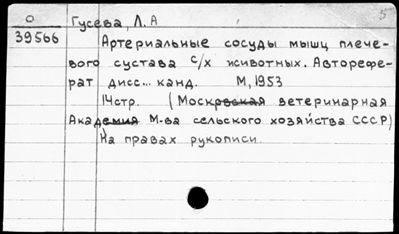 О Гусева, Л. А 5
39566 Артериальные сосуды мышц плече-
вого сустава с/х животных. Авторефе-
рат дисс... канд. М, 1953
14стр. (Московская ветеринарная
Академия М-ва сельского хозяйства СССР)
На правах рукописи.